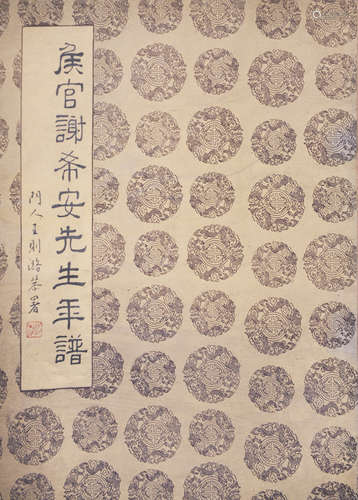 侯官謝希安先生年譜
門人王則潞恭署